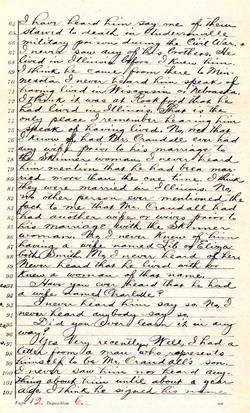 64 I have heard him say one of them
65 starved to death in Andersonville
66 military prison during the Civil War. &
67 I never saw any of his brothers. He
68 lived in Illinois before I knew him.
69 I think he came from there to Min-
70 nesota. I never heard him speak of
71 having lived in Wisconsin or Nebraska.
72 I think it was at Rockford that he
73 had lived in Illinois. That is the
74 only place I remember hearing him
75 speak of having lived. No, not that
76 I know of has Mr. Crandall ever had
77 any wife prior to his marriage to
78 the Skinner woman. I never heard
79 him mention that he had been mar-
80 ried more than the one time. I think
81 they were married in Illinois. No,
82 no other person ever mentioned the
83 fact to me that Mr. Crandall had
84 had another wife or wives prior to
85 his marriage with the Skinner
86 woman. No, I never knew of him
87 having a wife named
88 Smith. No, I never heard of her.
89 Never heard that he lived with or
90 knew a woman of that name.
Have you ever heard that he had
a wife named Charlotte?
I never heard him say so. No, I
never heard anybody say so.
Did you ever learn it in any
way?
Yes. Very recently. Well, I had a
letter from a man who represents
himself to be Mr. Crandall's son.
I never saw him nor heard any-
101 thing about him until about a year
102 ago. I think he signed his name
Page 12 Deposition C.